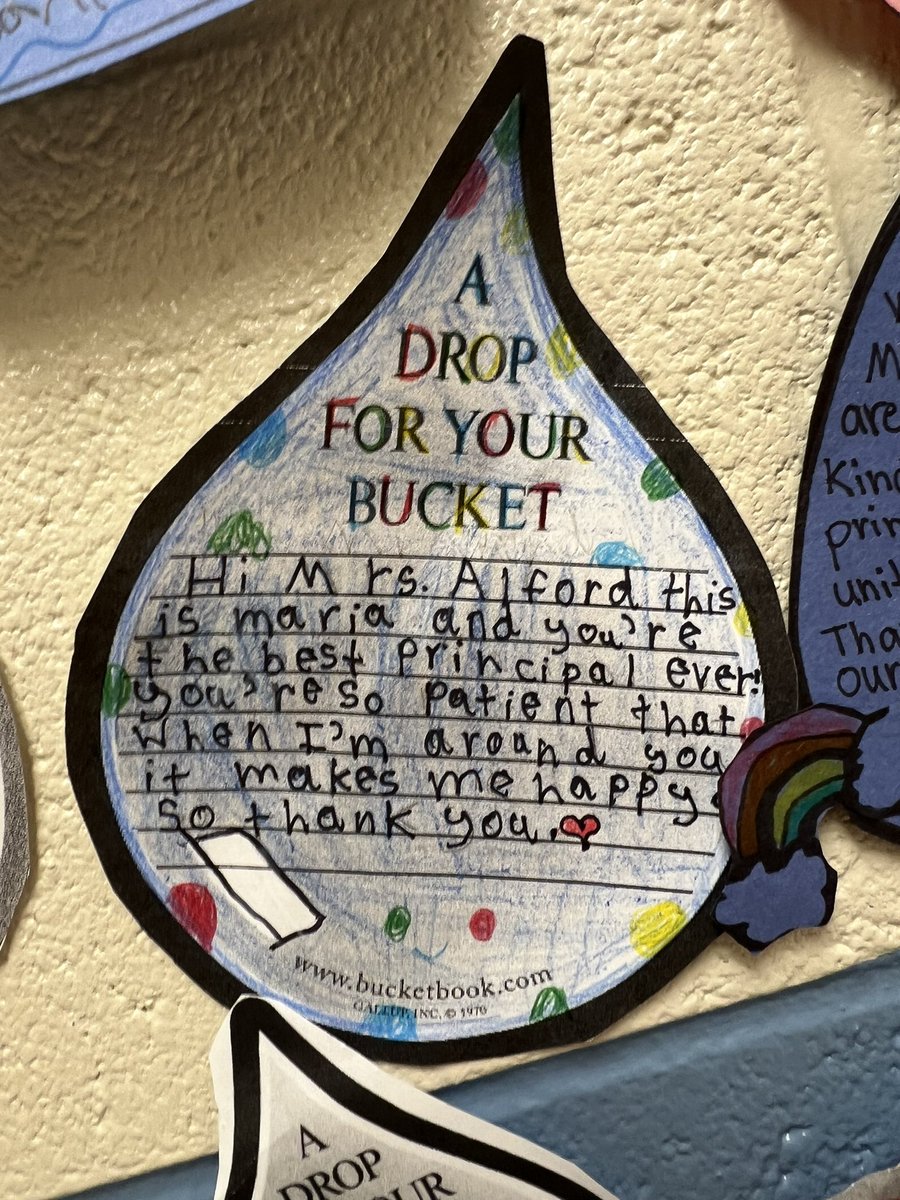 A
DROP
FOR YOUR
BUCKET
Hi Mrs. Alford this
is maria and you're
the best principal ever!
you're so patient that
when I'm around you
it makes me happy
so thank you.
www.bucketbook.com
GALLUP, INC. © 1970
are
Kind
unit
our
A
DROP